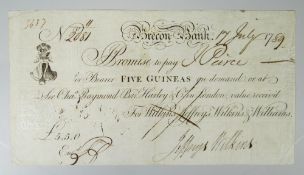 5637
No 2051 Brecon Bank, 17 July 1789
Promise to pay Peirce
or Bearer FIVE GUINEAS on demand or at
Sir Chas Raymond Bart Harley & Co in London value received
For Wilkins, Jeffreys, Wilkins & Williams.
£5.5.0
Jeffreys Wilkins